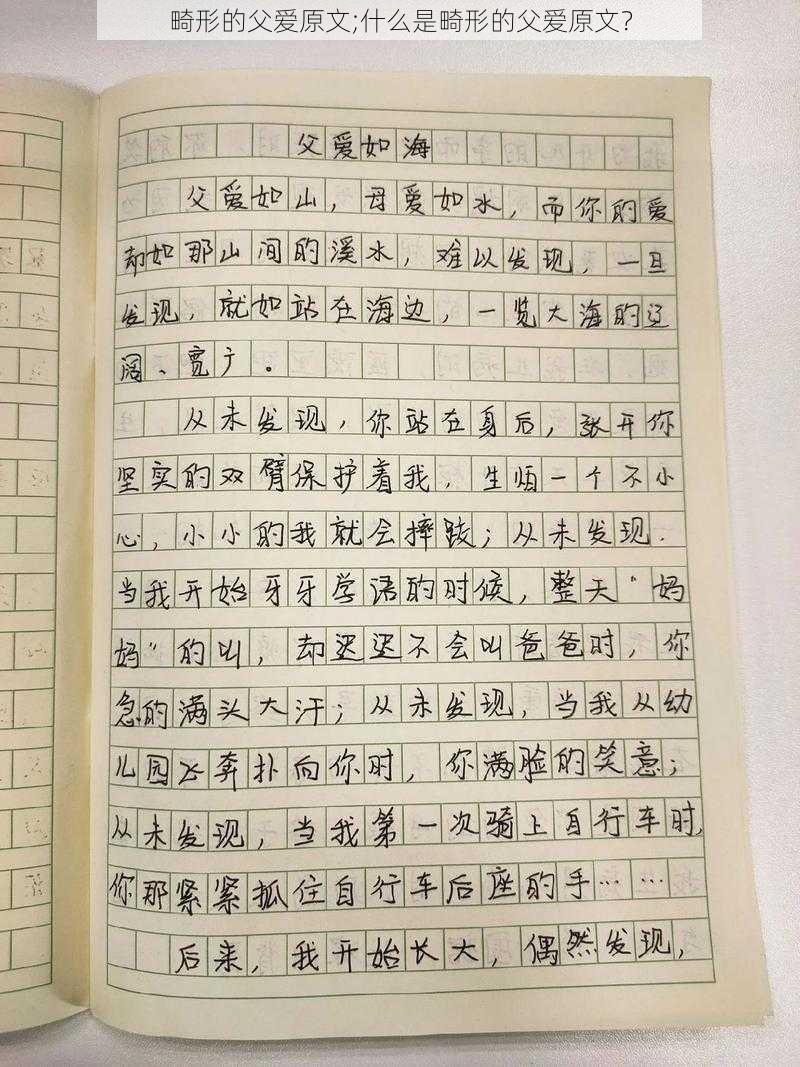 畸形的父爱原文;什么是畸形的父爱原文?
父爱如海
父爱如山，母爱如水，而你的爱
却如那山间的溪水，难以发现，一旦
发现，就如站在海边，一览大海的辽
阔、宽广。
从未发现，你站在身后，张开你
坚实的双臂保护着我，生怕一个不小
心，小小的我就会摔跤；从未发现.
当我开始牙牙学语的时候，整天“妈
妈”的叫，却迟迟不会叫爸爸时，你
急的满头大汗；从未发现，当我从幼
儿园飞奔扑向你时，你满脸的笑意；
从未发现，当我第一次骑上自行车时，
你那紧紧抓住自行车后座的手……
后来，我开始长大，偶然发现，